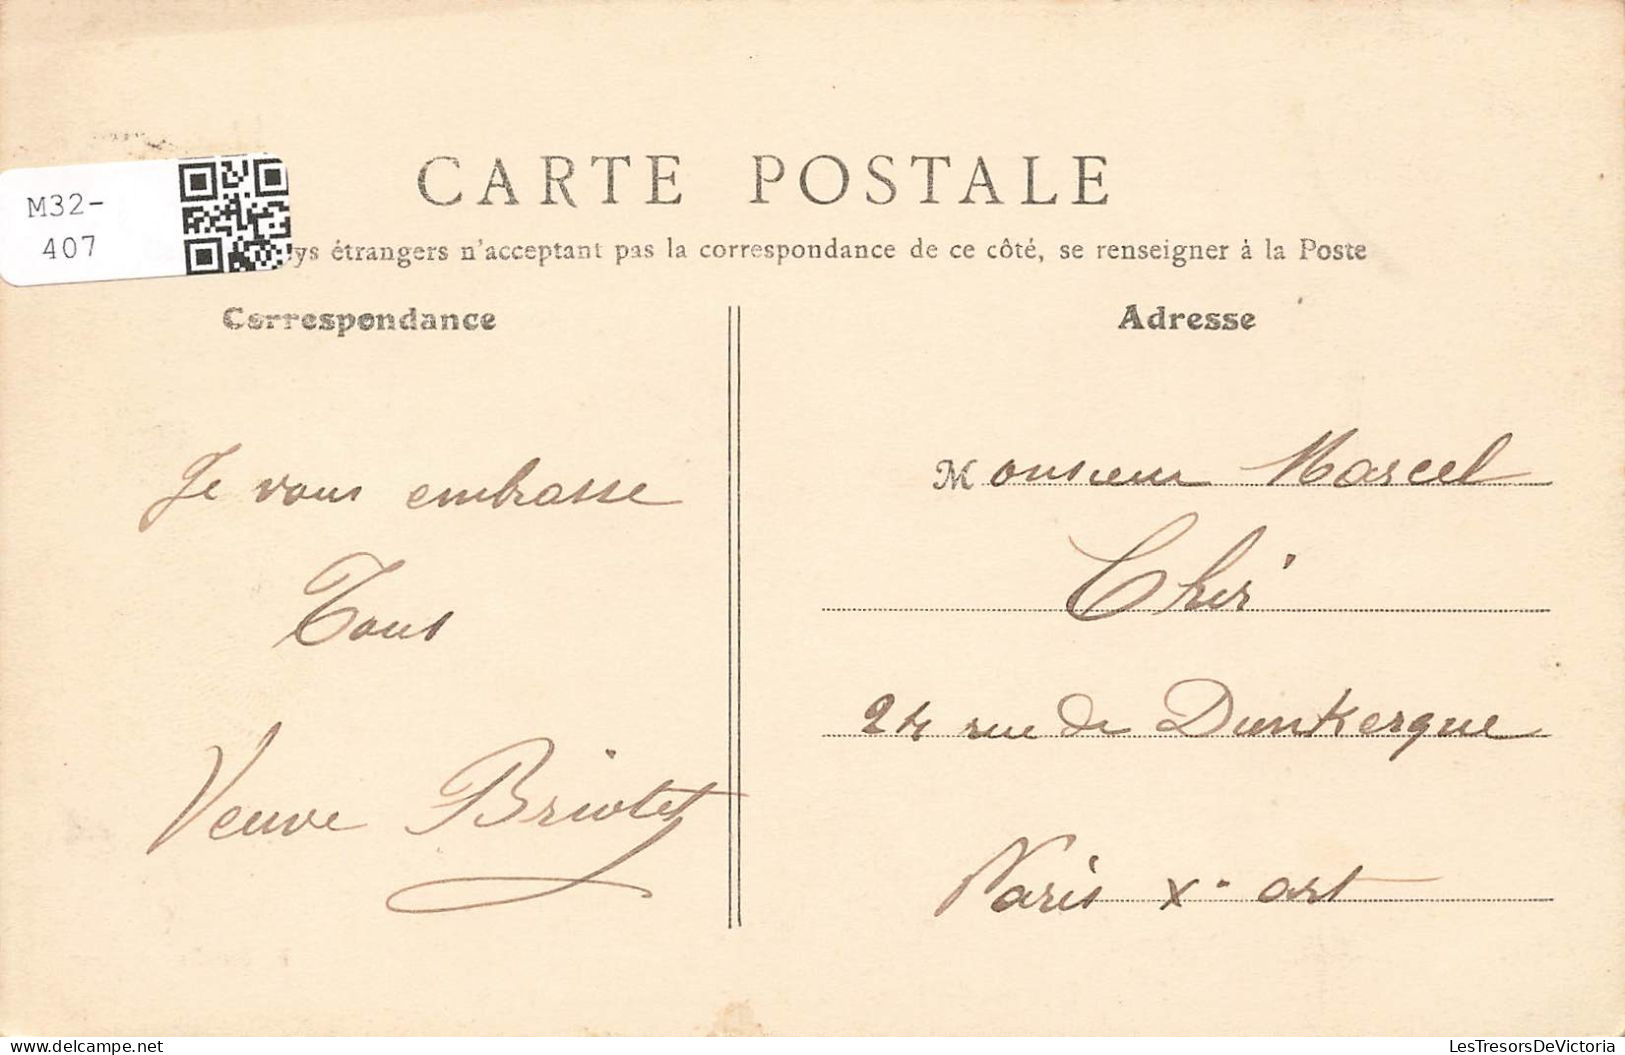 CARTE POSTALE
M32-
407
ys étrangers n'acceptant pas la correspondance de ce côté, se renseigner à la Poste
Correspondance
Adresse
Je vous embrasse
Tous
Veuve Briotet
Monsieur Marcel
24 rue de Dunkerque
Paris X. art
LesTresorsDeVictoria